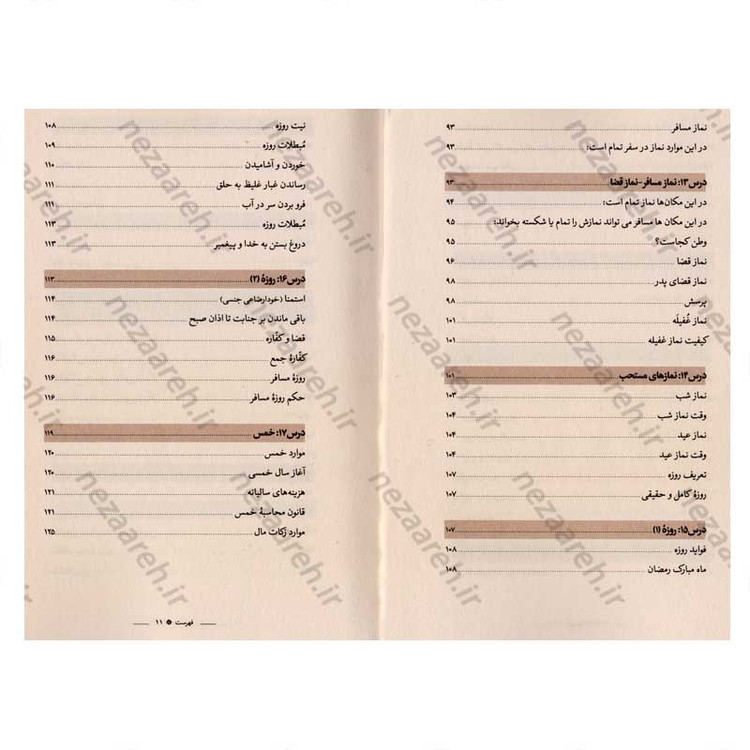 نماز مسافر ۹۳
در این موارد نماز در سفر تمام است: ۹۳
درس۱۳: نماز مسافر-نماز قضا ۹۳
در این مکان‌ها نماز تمام است: ۹۴
در این مکان ها مسافر می تواند نمازش را تمام یا شکسته بخواند: ۹۵
وطن کجاست؟ ۹۵
نماز قضا ۹۶
نماز قضای پدر ۹۸
پرسش ۹۸
نماز غُفیله ۱۰۱
کیفیت نماز غفیله ۱۰۱
درس۱۴: نمازهای مستحب ۱۰۱
نماز شب ۱۰۳
وقت نماز شب ۱۰۴
نماز عید ۱۰۴
وقت نماز عید ۱۰۴
تعریف روزه ۱۰۷
روزهٔ کامل و حقیقی ۱۰۷
درس۱۵: روزهٔ (۱) ۱۰۷
فواید روزه ۱۰۸
ماه مبارک رمضان ۱۰۸
نیت روزه ۱۰۸
مُبطلات روزه ۱۰۹
خوردن و آشامیدن ۱۱۰
رساندن غبار غلیظ به حلق ۱۱۱
فرو بردن سر در آب ۱۱۱
مُبطلات روزه ۱۱۳
دروغ بستن به خدا و پیغمبر ۱۱۳
درس۱۶: روزهٔ (۲) ۱۱۳
استمنا (خودارضاعی جنسی) ۱۱۴
باقی ماندن بر جنابت تا اذان صبح ۱۱۴
قضا و کفّاره ۱۱۵
کفّارهٔ جمع ۱۱۶
روزهٔ مسافر ۱۱۶
حکم روزهٔ مسافر ۱۱۶
درس۱۷: خمس ۱۱۹
موارد خمس ۱۲۰
آغاز سال خمسی ۱۲۰
هزینه‌های سالیانه ۱۲۱
قانون محاسبهٔ خمس ۱۲۱
موارد زکات مال ۱۲۵
فهرست ۱۱
nezaareh.ir